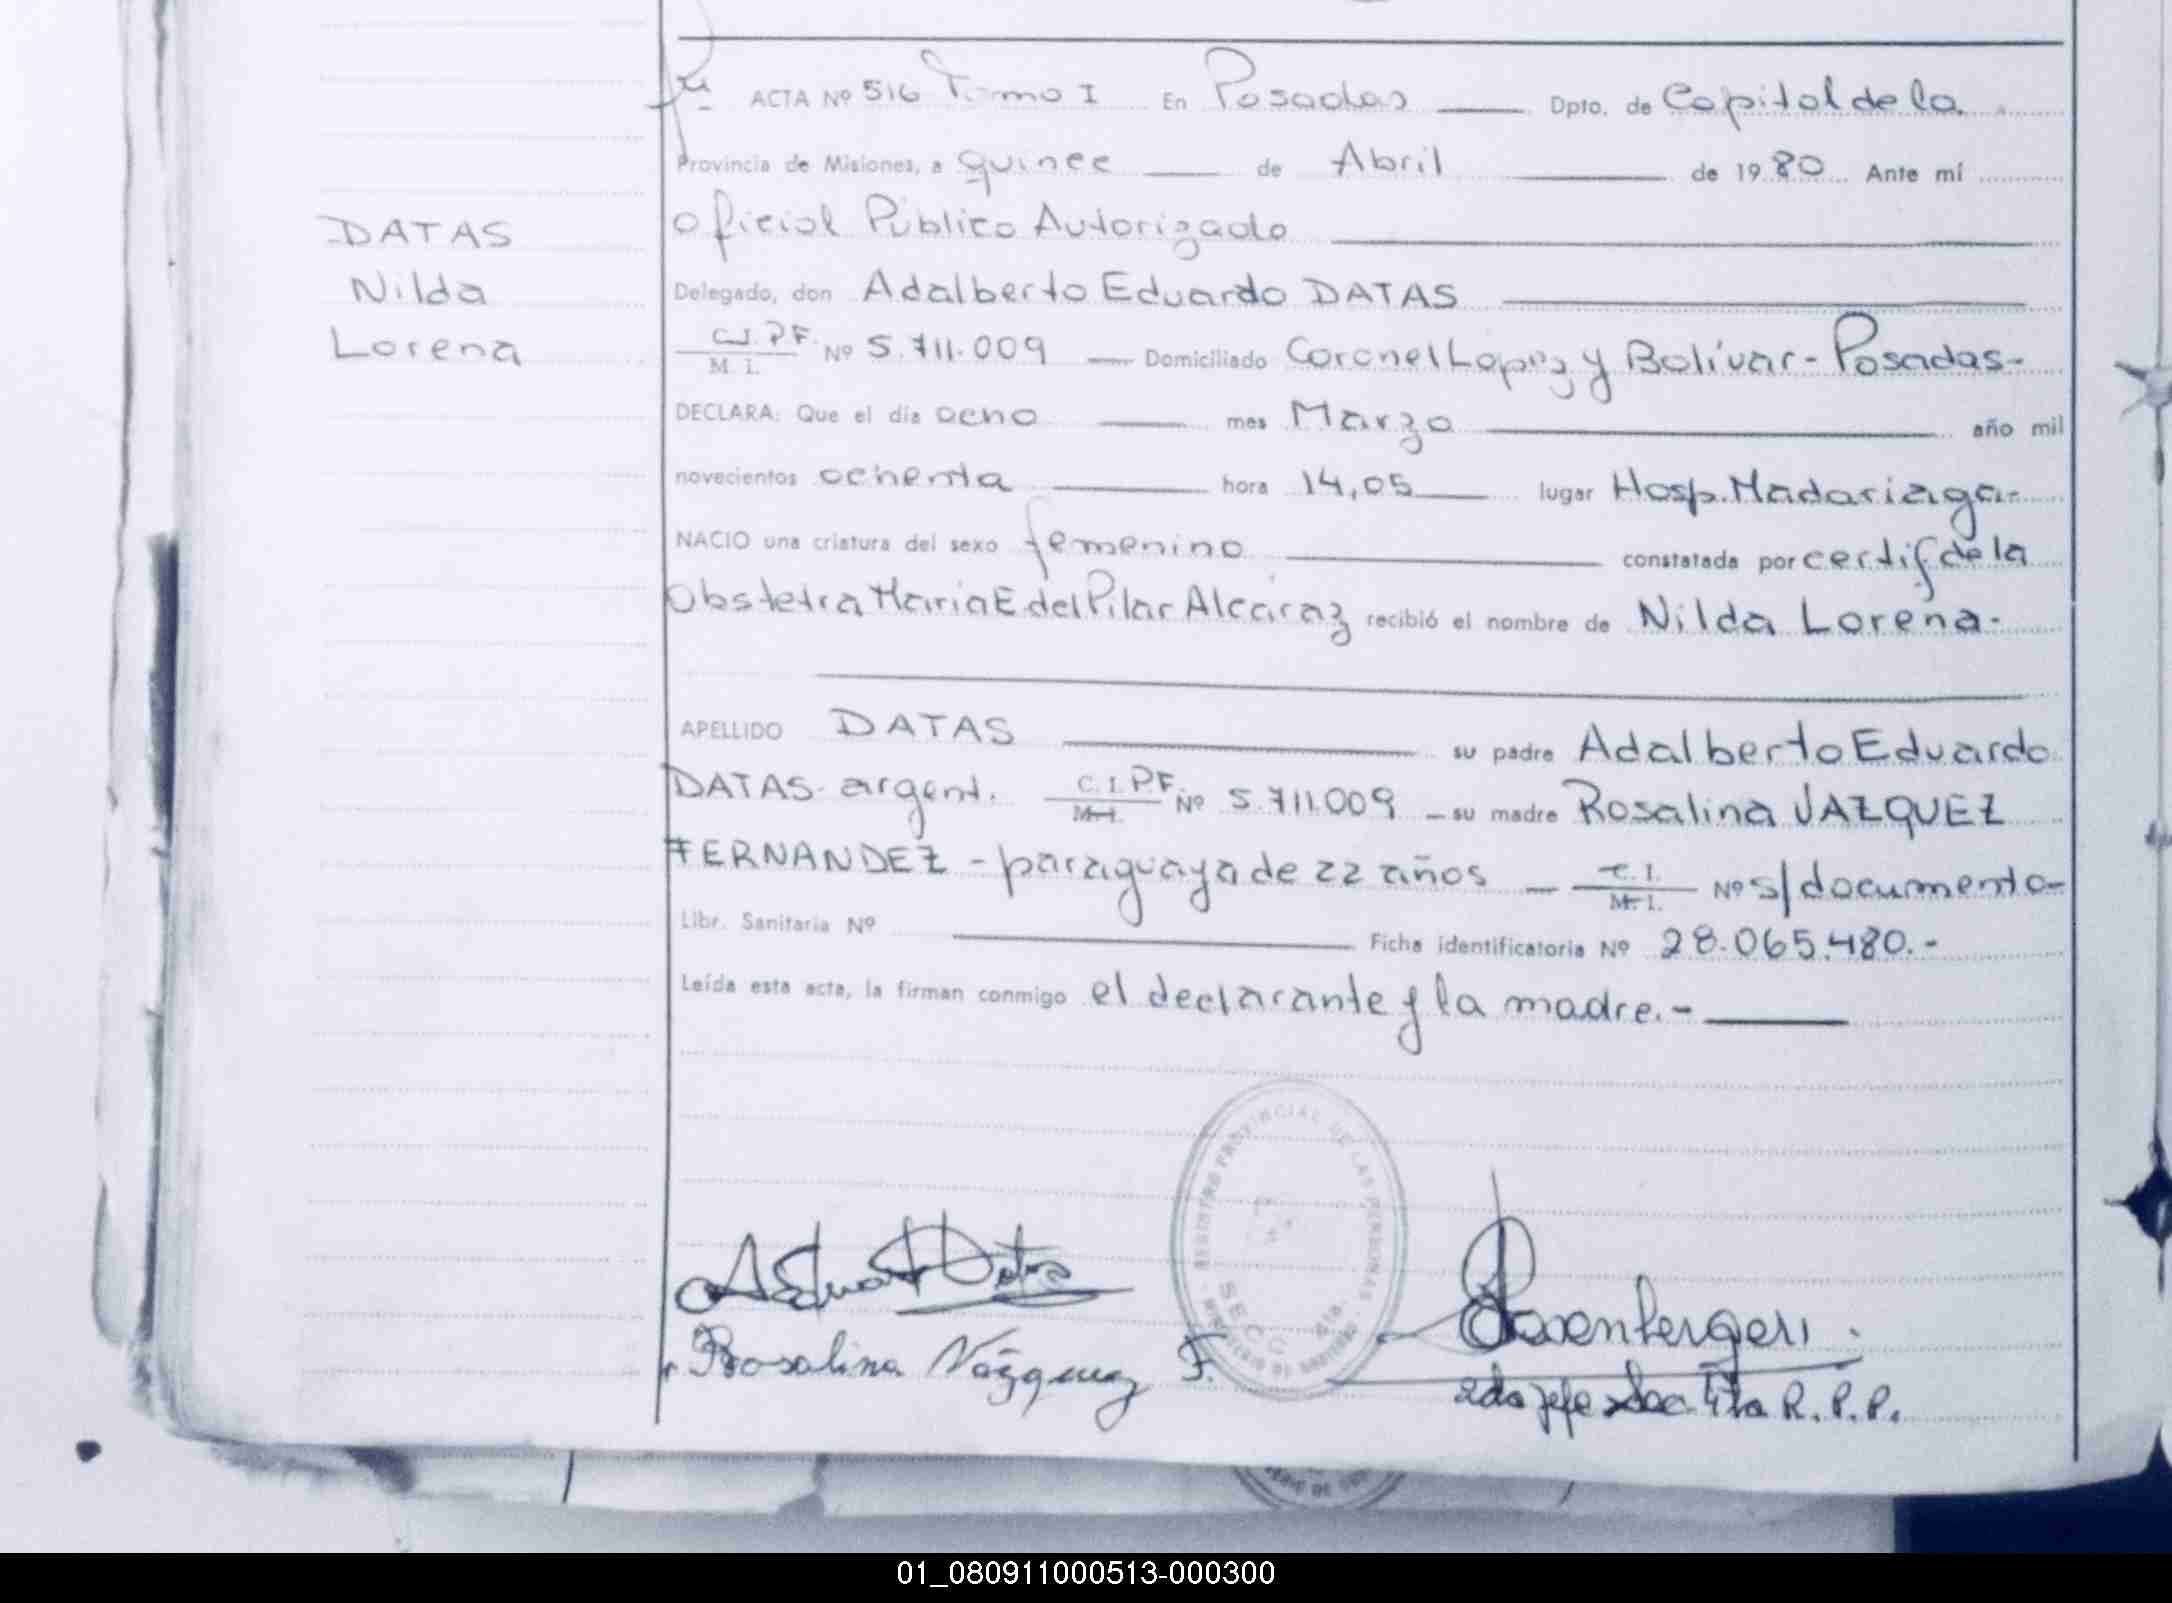 ACTA Nº 516 Tomo I En Posadas Dpto. de Capital de la
Provincia de Misiones, a quince de Abril de 1980 Ante mí
Oficial Público Autorizado
DATAS
Nilda
Lorena
Delegado, don Adalberto Eduardo DATAS
C.I.P.F. M. I. Nº 5.711.009 Domiciliado Coronel Lopez y Bolívar - Posadas -
DECLARA: Que el día ocho mes Marzo año mil
novecientos ochenta hora 14,05 lugar Hosp. Madariaga -
NACIO una criatura del sexo femenino constatada por certif de la
Obstetra Maria E. del Pilar Alcaraz recibió el nombre de Nilda Lorena -
APELLIDO DATAS su padre Adalberto Eduardo
DATAS - argent. C.I.P.F. M. I. Nº 5.711.009 - su madre Rosalina VAZQUEZ
FERNANDEZ - paraguaya de 22 años - C. I. M. I. Nº s/documento -
Libr. Sanitaria Nº Ficha identificatoria Nº 28.065.480.-
Leída esta acta, la firman conmigo el declarante y la madre.-
REGISTRO PROVINCIAL DE LAS PERSONAS
SECC. 4ta.
Rosalina Vázquez F.
2do Jefe Sec. 4ta R.P.P.
01_080911000513-000300